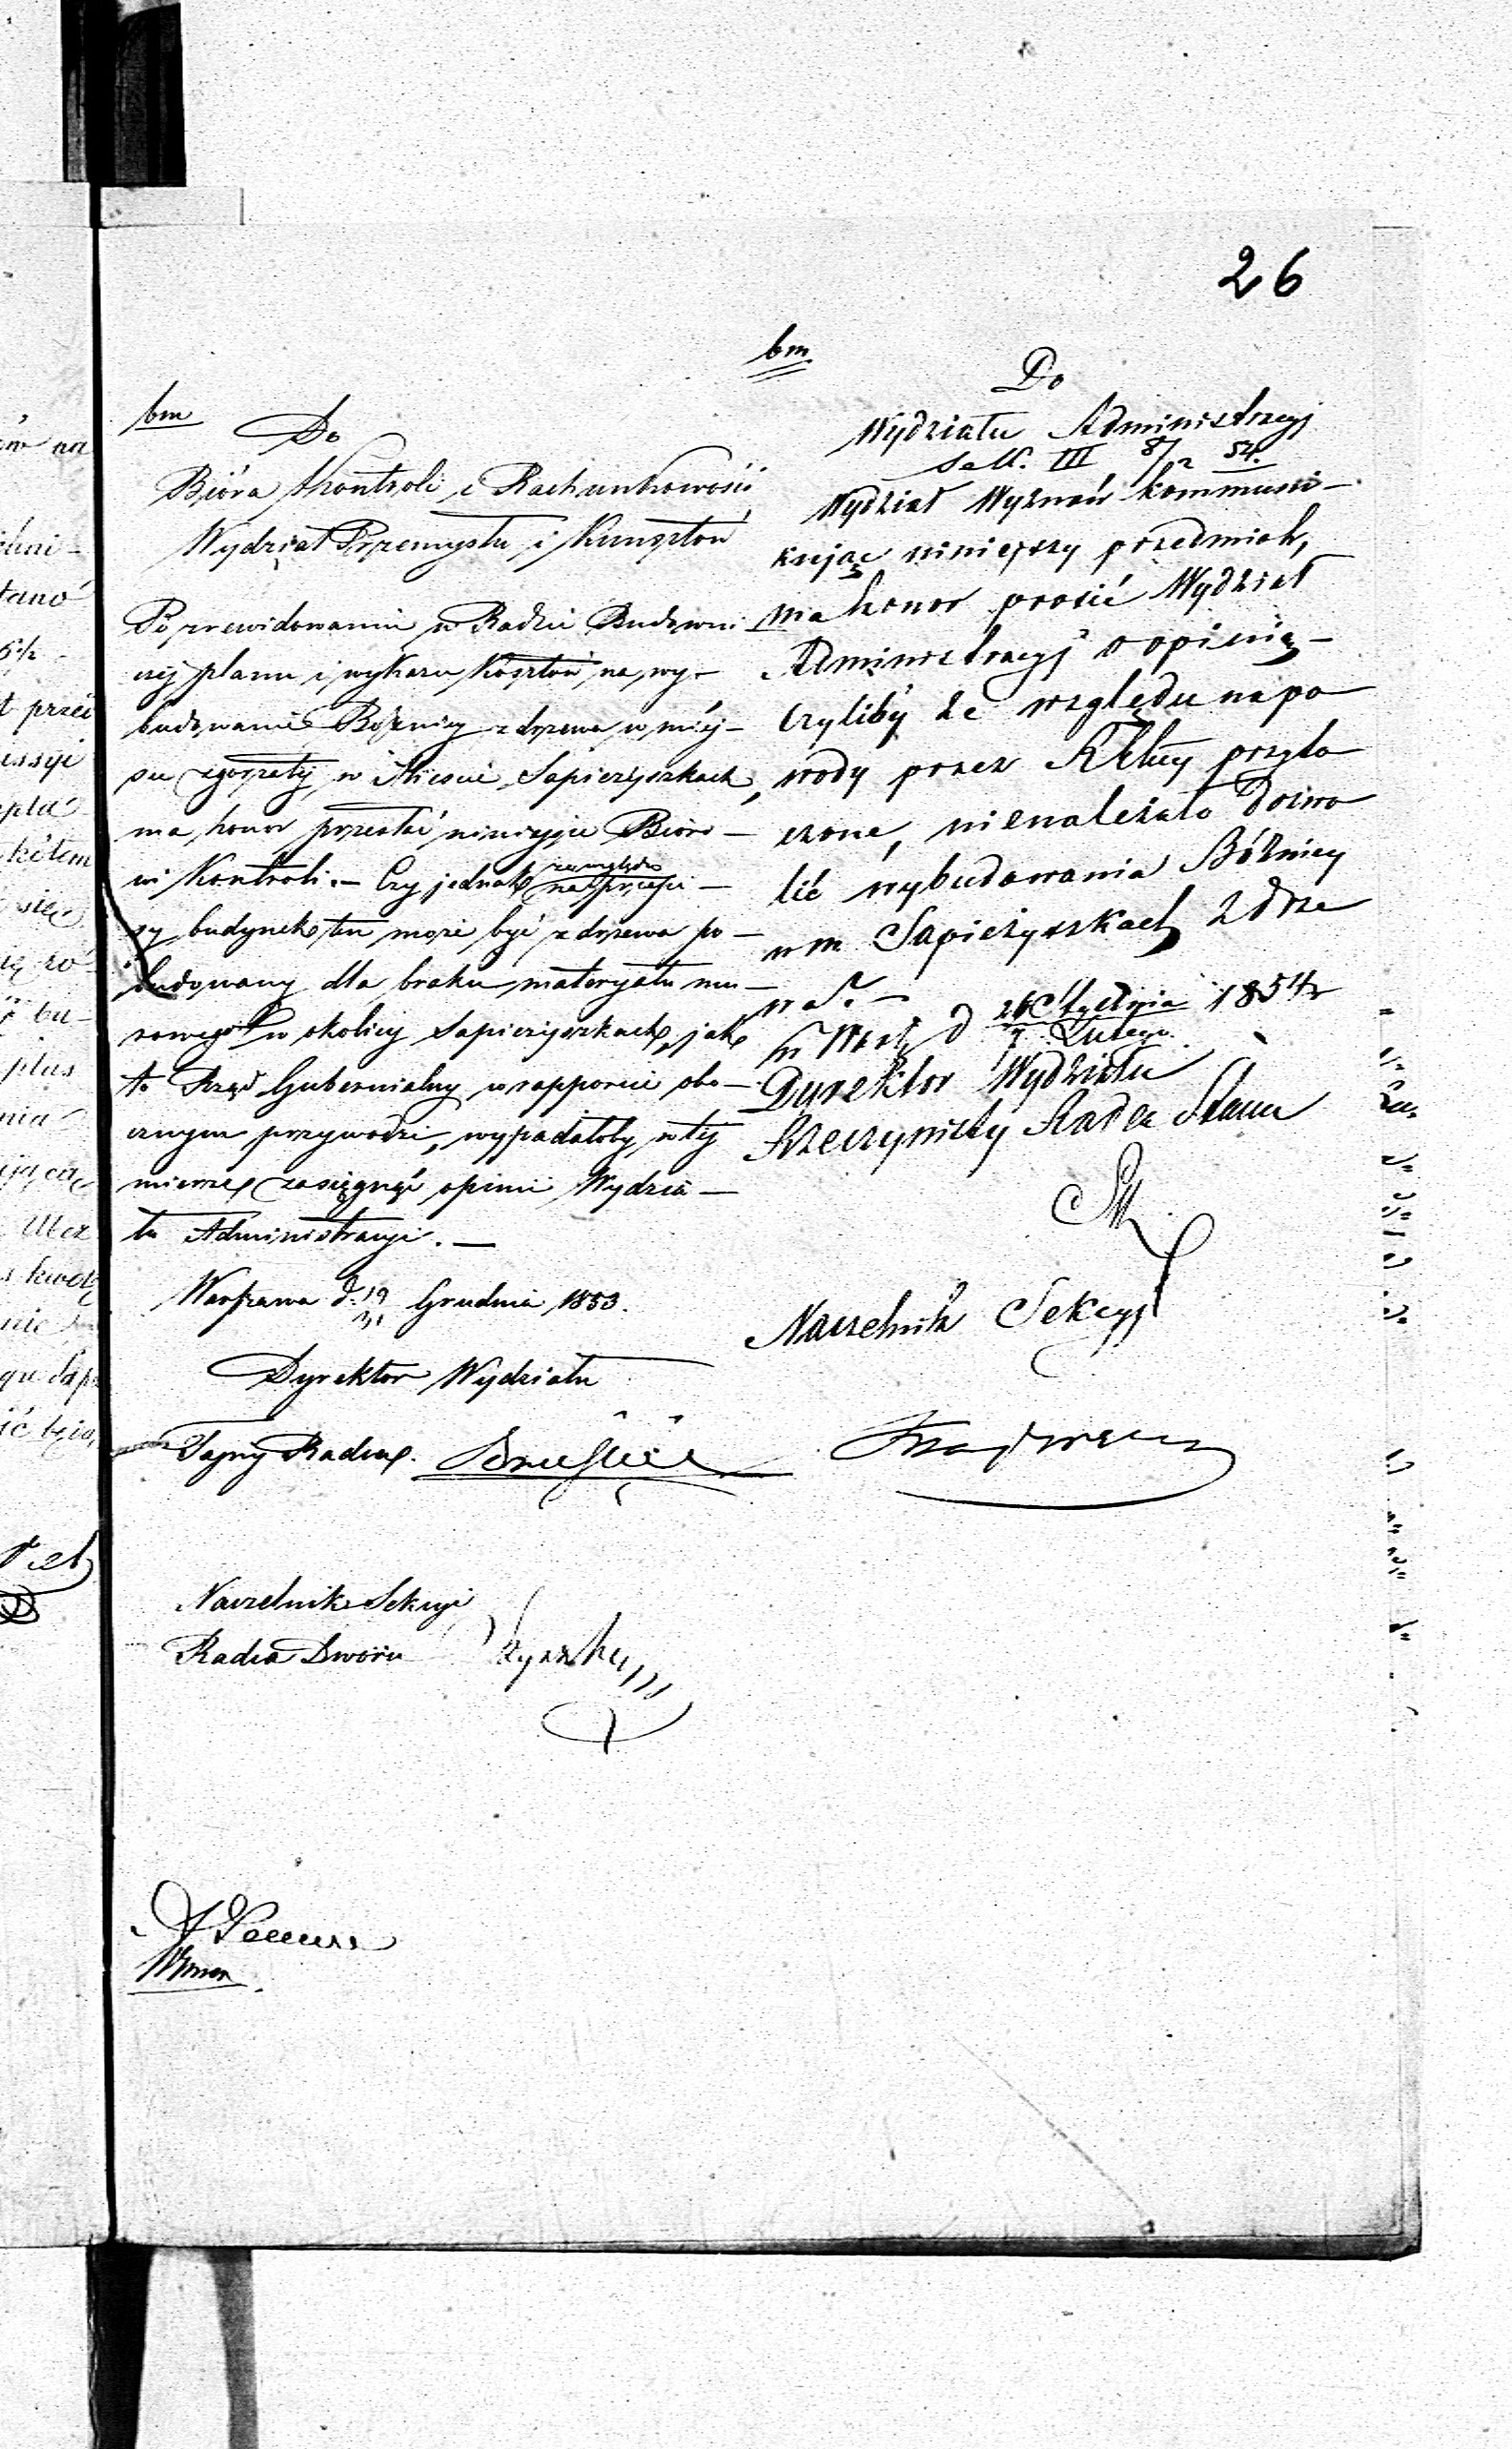 26
bm
Do
Bióra Kontroli i Rachunkowości
Wydział Przemysłu i Kunsztów
Po zrewidowaniu w Radzie Budowni
czéj planu i wykazu kosztów na wy-
budowanie Bożnicy z drzewa w miéj-
sce zgorzałéj w Mieście Sapieżyszkach,
ma honor przesłać niniejsze Bióro-
wi Kontroli. – Czy jednak ze względu
na przepi-
sy budynek ten może być z drzewa po-
budowany dla braku materyału mu-
rowego w okolicy Sapieżyszkach, jak
to Rząd Gubernialny w rapporcie obo-
cznym przywodzi, wypadałoby w téj
mierze zasięgnąć opinii Wydzia-
łu Administracyi. –
Warszawa d. 19/31 Grudnia 1853.
Dyrektor Wydziału
Tajny Radca
Naczelnik Sekcyi
Radca Dworu
bm
Do
Wydziału Administracyj
Sekc. III 8/2 54.
Wydział Wyznań kommuni-
kując niniejszy przedmiot,
ma honor prosić Wydział
Administracyj o opinię –
czyliby ze względu na po
wody przez Rz. Gub. przyto
czone, nienależało dozwo
lić wybudowania Bóżnicy
w m. Sapieżyszkach z drze
wa. –
w Warsz. d 26 Stycznia / 7 Lutego 1854 r
Dyrektor Wydziału
Rzeczywisty Radca Stanu
Naczelnik Sekcyj